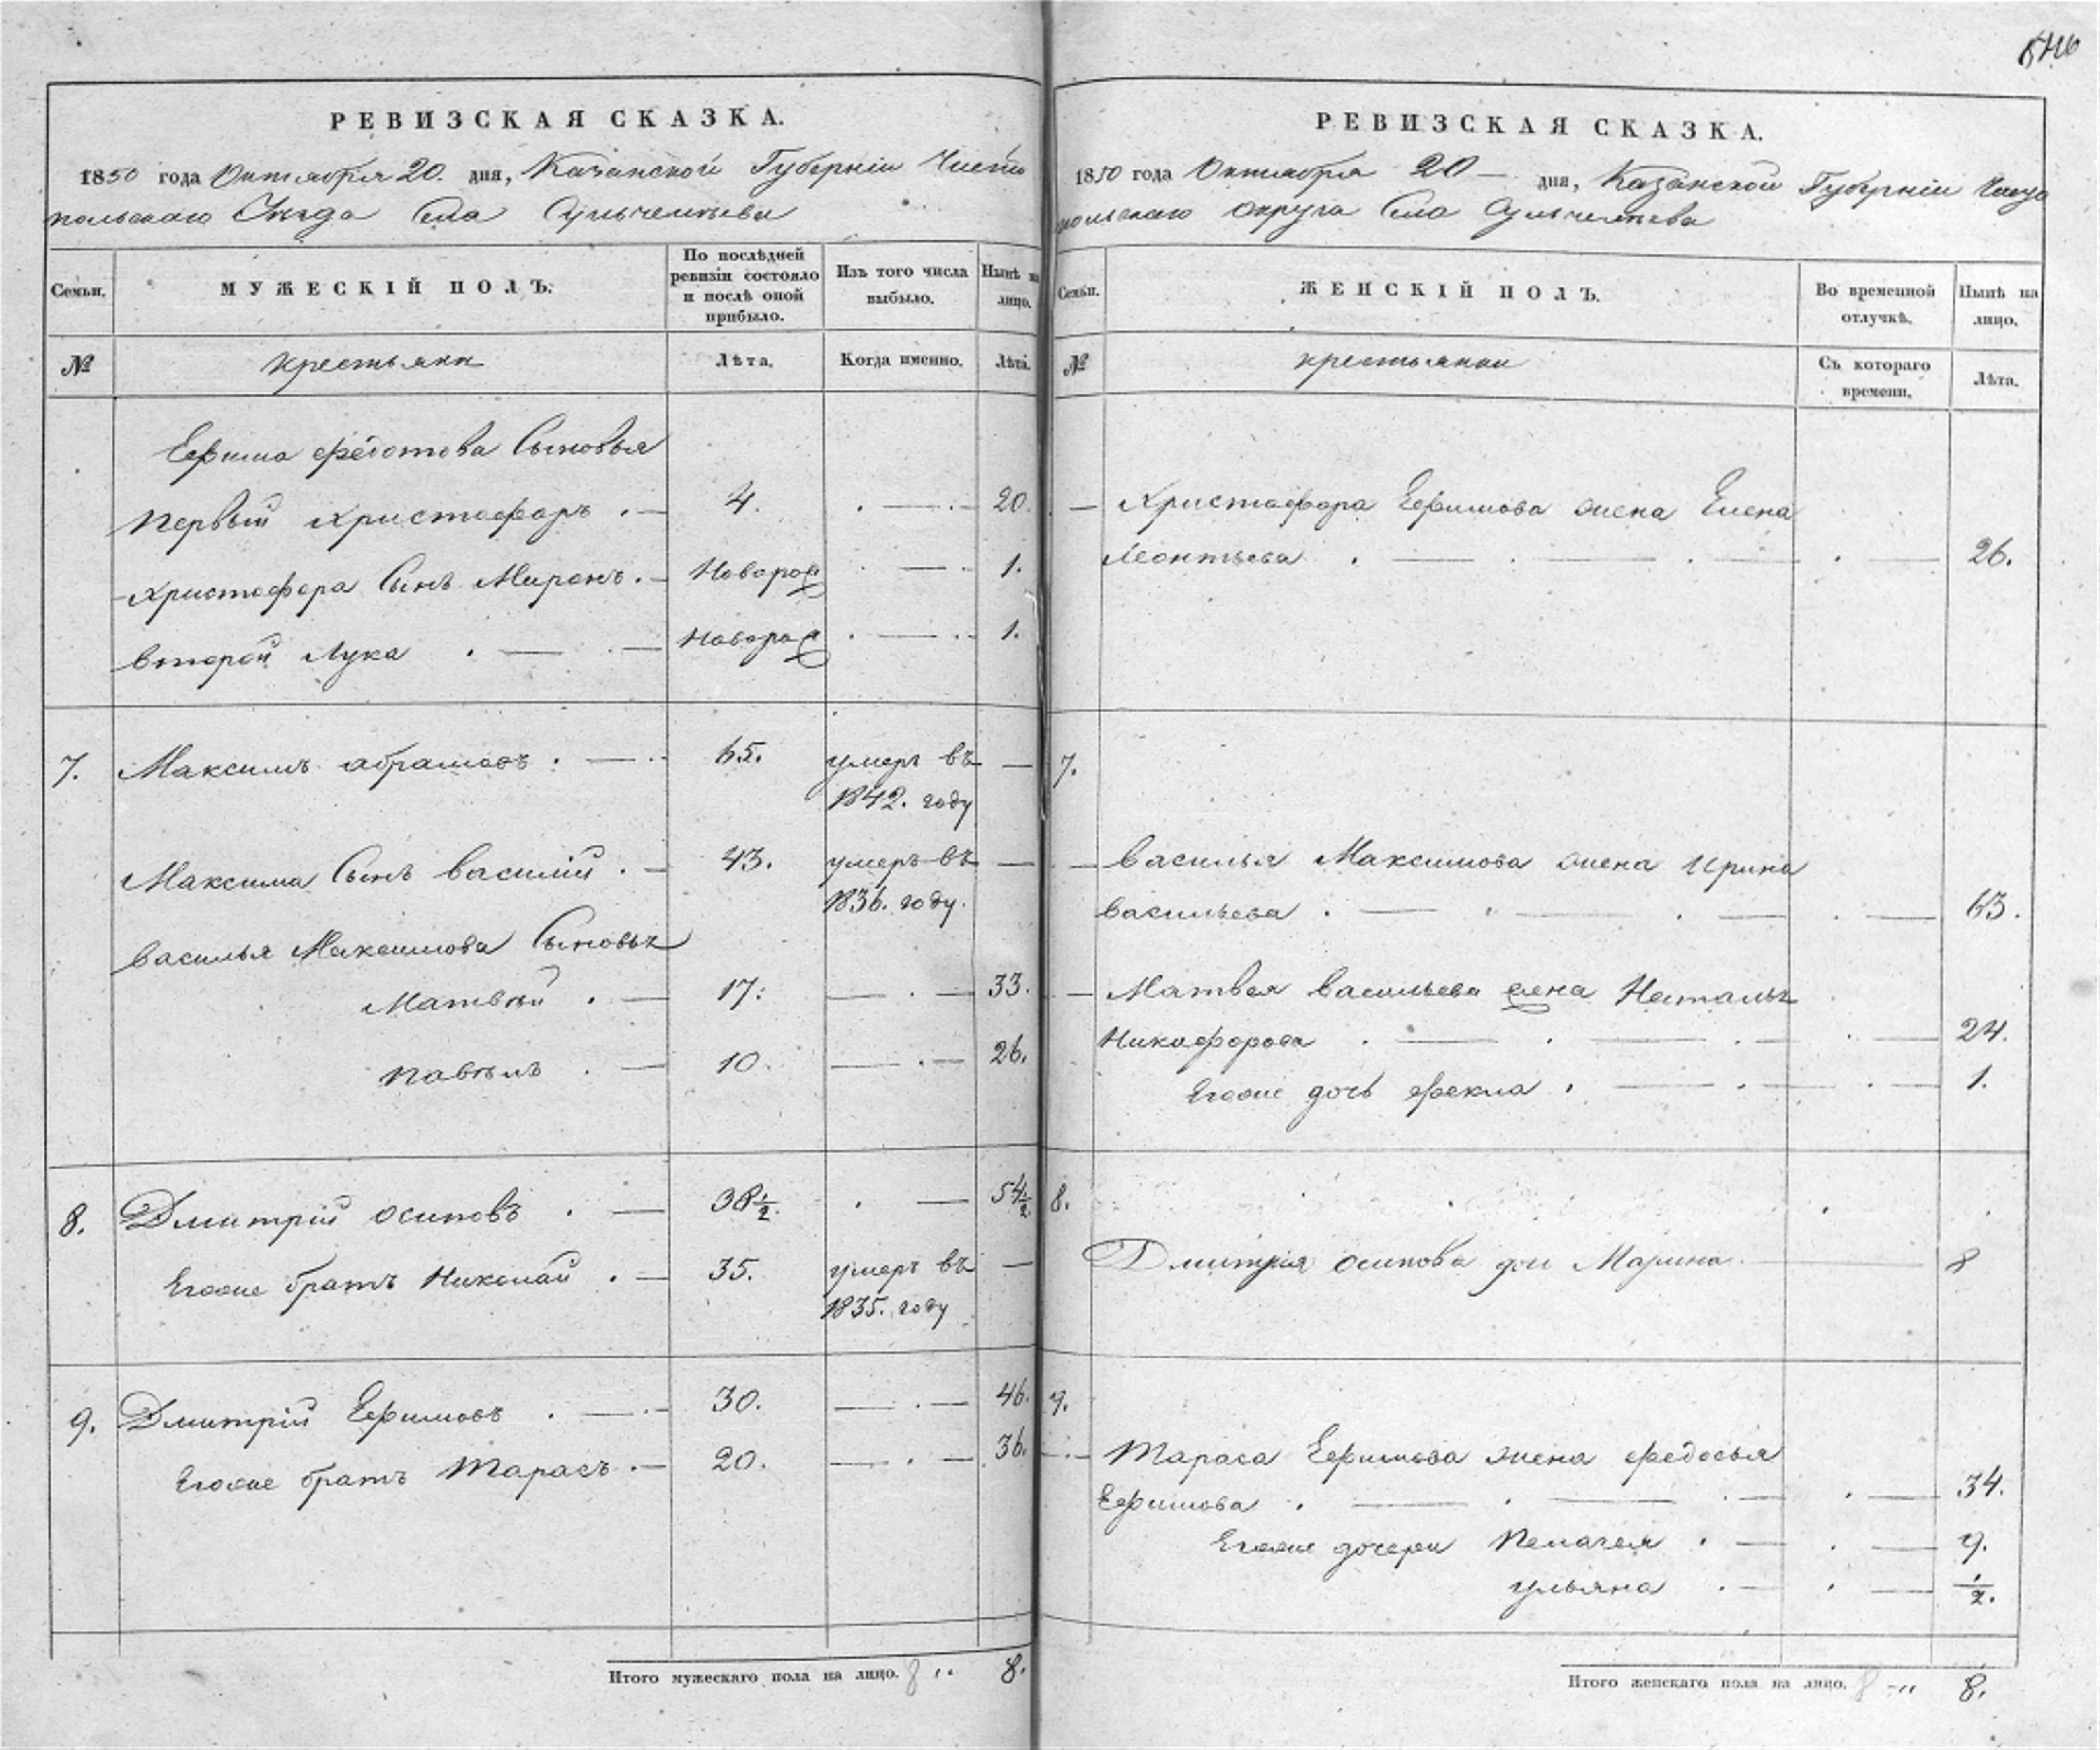 РЕВИЗСКАЯ СКАЗКА.
1850 года Октября 20. дня, Казанской Губерніи Чисто
польскаго Села
Семьи.
МУЖЕСКІЙ ПОЛЪ.
По послѣдней
ревизіи состояло
и послѣ оной
прибыло.
Изъ того числа
выбыло.
Нынѣ на
лицо.
№
крестьяни
Лѣта.
Когда именно.
Лѣта.
Ефима Федотова Сыновья
Первый Христофоръ . — 4. . — . — 20.
Христофора Сынъ Миронъ . — Новорож . — . 1.
второй Лука . — . — Новорож . — . . 1.
7. Максимъ абрамовъ . — . 65. умеръ въ —
1842. году
Максима Сынъ Василій . — 43. умеръ въ —
1836. году.
Василья Максимова Сыновья
Матвѣй . — 17. — . — 33.
Павѣлъ . — 10. — . — 26.
8. Дмитрій осиповъ . — 38½. . — 54½
Егоже братъ Николай . — 35. умеръ въ —
1835. году
9. Дмитрій Ефимовъ . — . 30. — . — 46.
Егоже братъ Тарасъ . — 20. — . — 36.
Итого мужескаго пола на лицо. 8 " 8.
РЕВИЗСКАЯ СКАЗКА.
1850 года Октября 20 — дня, Казанской Губерніи Чисто
польскаго округа Села
Семьи.
ЖЕНСКІЙ ПОЛЪ.
Во временной
отлучкѣ.
Нынѣ на
лицо.
№
крестьянки
Съ котораго
времени.
Лѣта.
— Христофора Ефимова жена Елена
Леонтьева . — . — . — . — 26.
7.
— Василья Максимова жена Ирина
Васильева . — . — . — . — 63.
— Матвея Васильева жена Наталья
Никифорова . — . — . — . — 24.
Егоже дочь Фекла . — . — . — 1.
8.
Дмитрія осипова доч Марина — 8
9.
— Тараса Ефимова жена Федосья
Ефимова . — . — . — . — 34.
Егоже дочери Пелагея . — . — 9.
Ульяна . — . — ½.
Итого женскаго пола на лицо. 8 — " 8.